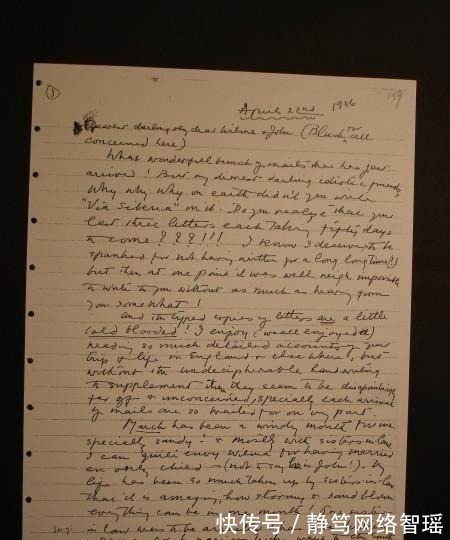 ① 139
April 22nd 1936
Dearest darling my dear Wilma & John (Blush for all
concerned here)
What wonderful bunch of mails that has just
arrived! But my dearest darling idiotic friends
Why why why on earth didn't you write
"Via Siberia" on it. Do you realize that your
last three letters each taking fifty days
to come ? ? ? ! ! ! I know I deserve to be
spanked for not having written for a long long time!)
but then at one point it was well neigh impossible
to write to you without as much as hearing from
you somewhat!
And the typed copies of letters are a little
cold blooded! I enjoy (we all enjoyed it)
reading so much detailed accounts of your
trip & life in England & elsewhere, but
without the undecipherable handwriting
to supplement them they seem to be disappointing
far off & unconcerned, specially each arrival
of mails are so waited for on my part.
March has been a windy month for me
specially sandy & mostly with sisters-in-law
I can quite envy Wilma for having married
an only child (not to say it is John!). My
life has been so much taken up by sisters-in-law
that it is amazing, how stormy & sand blown
everything can be in one month!
in law
快传号 / 静笃网络智瑶